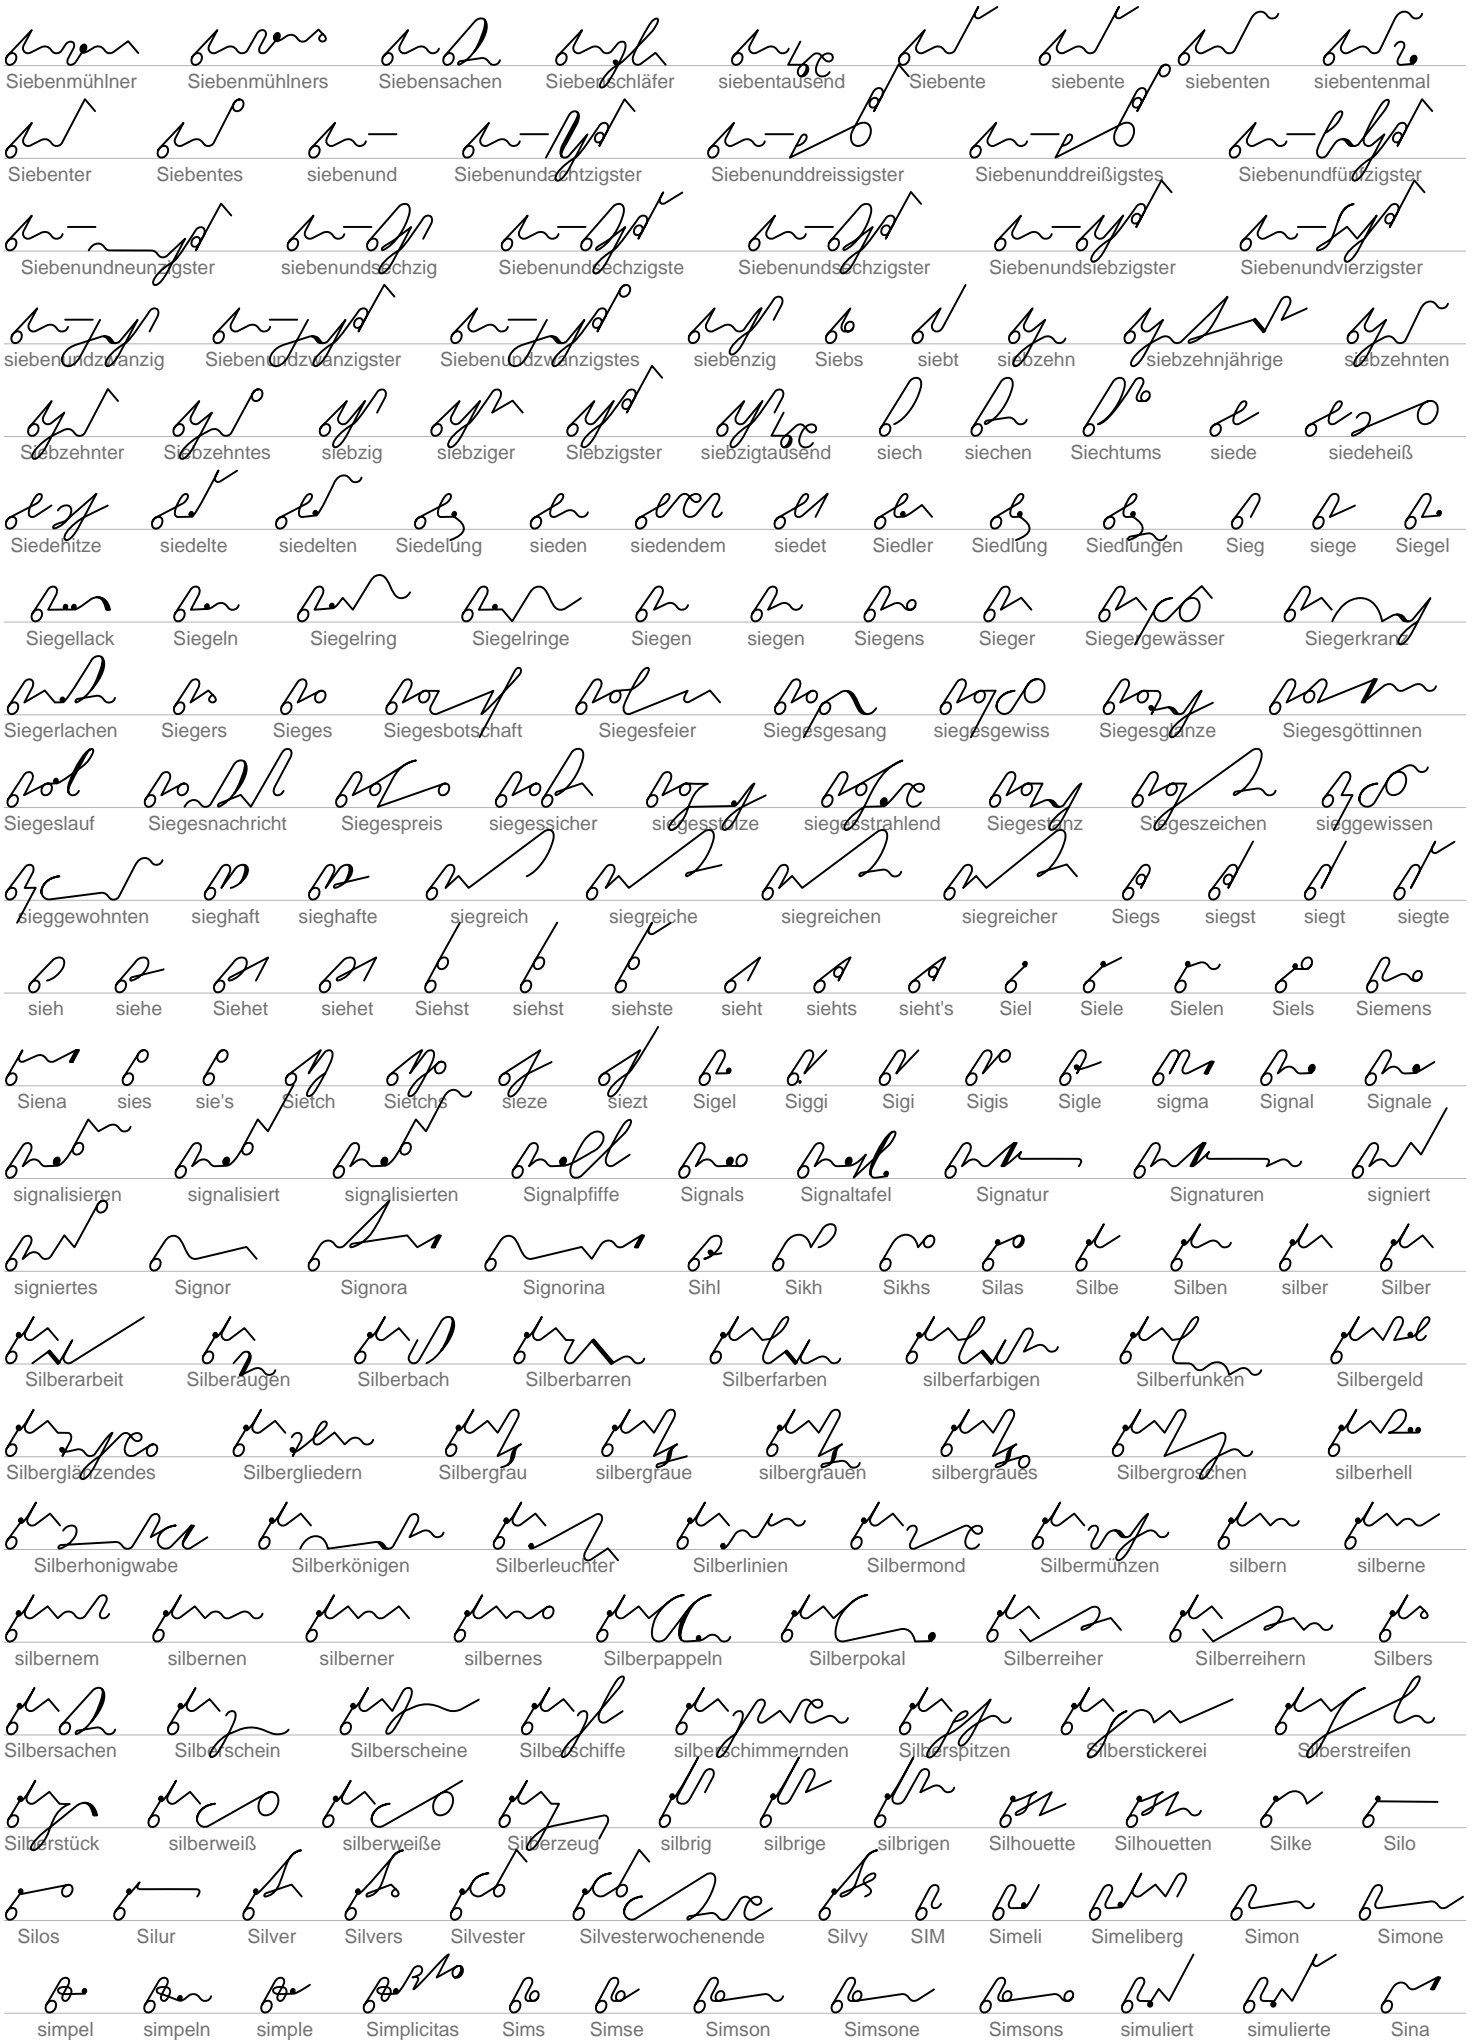 Siebenmühlner Siebenmühlners Siebensachen Siebenschläfer siebentausend Siebente siebente siebenten siebentenmal
Siebenter Siebentes siebenund Siebenundachtzigster Siebenunddreissigster Siebenunddreißigstes Siebenundfünfzigster
Siebenundneunzigster siebenundsechzig Siebenundsechzigste Siebenundsechzigster Siebenundsiebzigster Siebenundvierzigster
siebenundzwanzig Siebenundzwanzigster Siebenundzwanzigstes siebenzig Siebs siebt siebzehn siebzehnjährige siebzehnten
Siebzehnter Siebzehntes siebzig siebziger Siebzigster siebzigtausend siech siechen Siechtums siede siedeheiß
Siedehitze siedelte siedelten Siedelung sieden siedendem siedet Siedler Siedlung Siedlungen Sieg siege Siegel
Siegellack Siegeln Siegelring Siegelringe Siegen siegen Siegens Sieger Siegergewässer Siegerkranz
Siegerlachen Siegers Sieges Siegesbotschaft Siegesfeier Siegesgesang siegesgewiss Siegesglanze Siegesgöttinnen
Siegeslauf Siegesnachricht Siegespreis siegessicher siegesstolze siegesstrahlend Siegestanz Siegeszeichen sieggewissen
sieggewohnten sieghaft sieghafte siegreich siegreiche siegreichen siegreicher Siegs siegst siegt siegte
sieh siehe Siehet siehet Siehst siehst siehste sieht siehts sieht's Siel Siele Sielen Siels Siemens
Siena sies sie's Sietch Sietchs sieze siezt Sigel Siggi Sigi Sigis Sigle sigma Signal Signale
signalisieren signalisiert signalisierten Signalpfiffe Signals Signaltafel Signatur Signaturen signiert
signiertes Signor Signora Signorina Sihl Sikh Sikhs Silas Silbe Silben silber Silber
Silberarbeit Silberaugen Silberbach Silberbarren Silberfarben silberfarbigen Silberfunken Silbergeld
Silberglänzendes Silbergliedern Silbergrau silbergraue silbergrauen silbergraues Silbergroschen silberhell
Silberhonigwabe Silberkönigen Silberleuchter Silberlinien Silbermond Silbermünzen silbern silberne
silbernem silbernen silberner silbernes Silberpappeln Silberpokal Silberreiher Silberreihern Silbers
Silbersachen Silberschein Silberscheine Silberschiffe silberschimmernden Silberspitzen Silberstickerei Silberstreifen
Silberstück silberweiß silberweiße Silberzeug silbrig silbrige silbrigen Silhouette Silhouetten Silke Silo
Silos Silur Silver Silvers Silvester Silvesterwochenende Silvy SIM Simeli Simeliberg Simon Simone
simpel simpeln simple Simplicitas Sims Simse Simson Simsone Simsons simuliert simulierte Sina